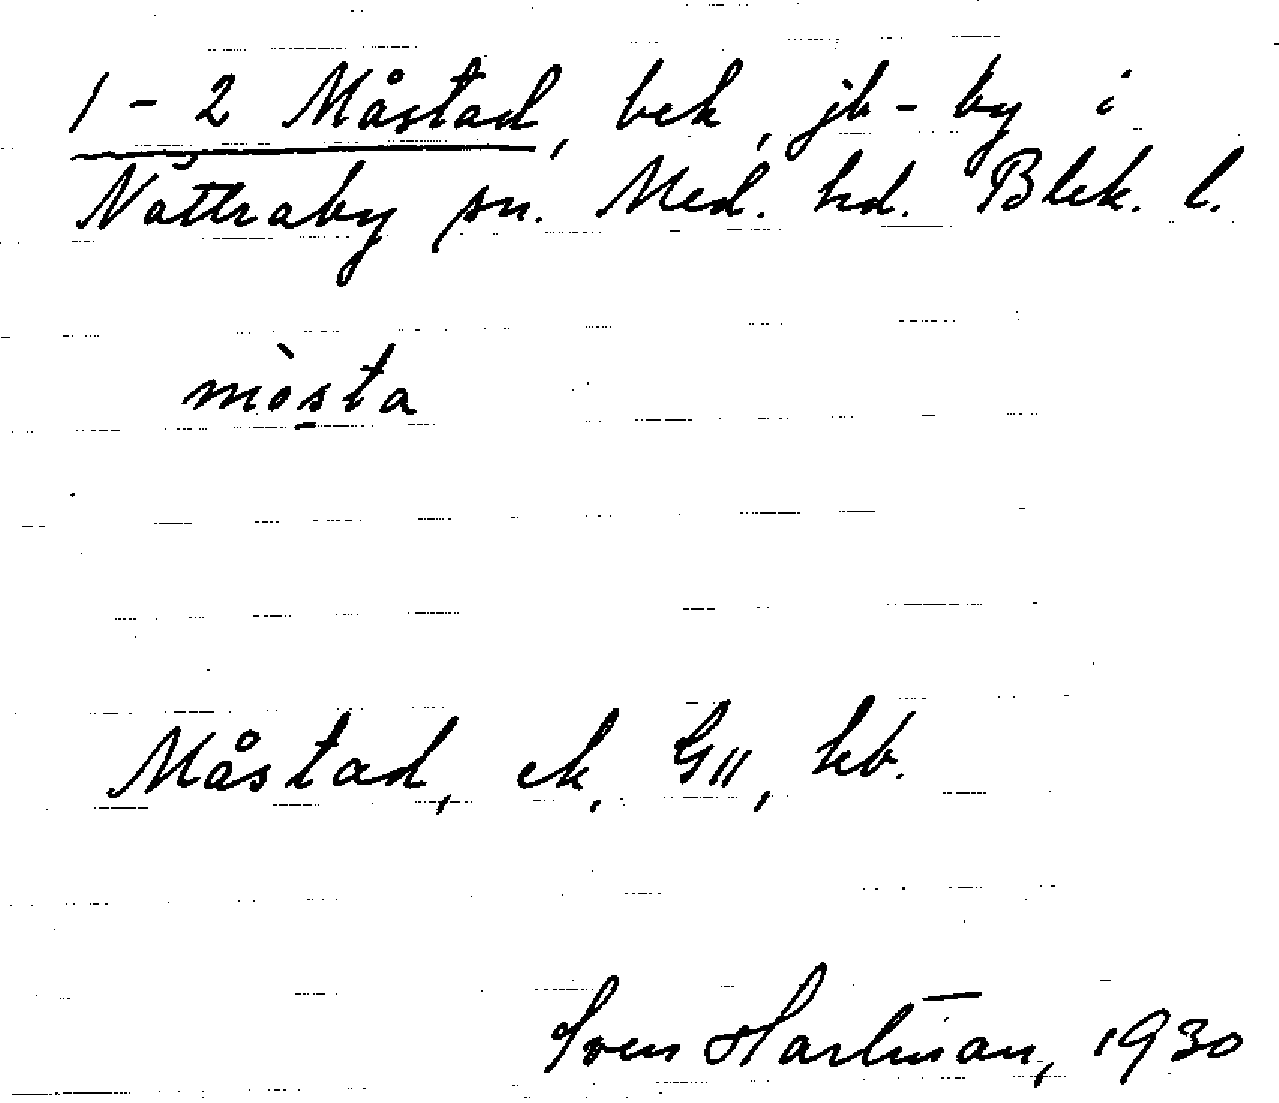 1 - 2 Måstad, bek, jb - by i
Nättraby sn. Med. hd. Blek. l.
mòsta
Måstad, ek, G11, kb.
Sven Hartman, 1930